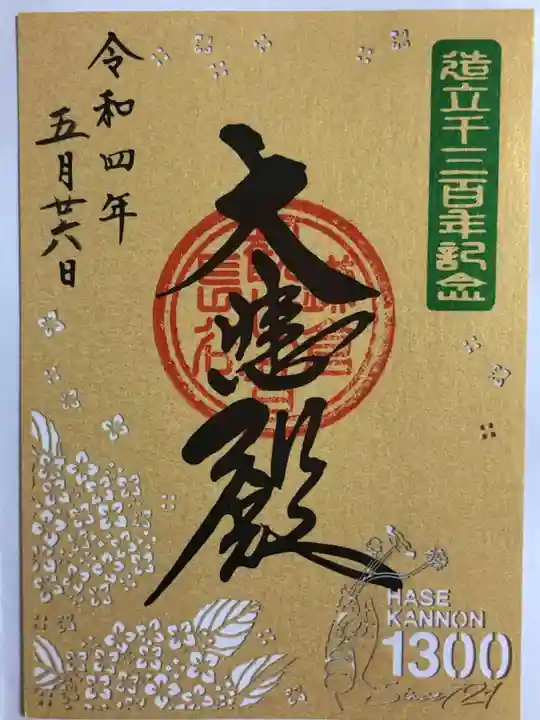 造立千三百年記念
大悲殿
令和四年
五月廿六日
HASE
KANNON
1300
Since 721